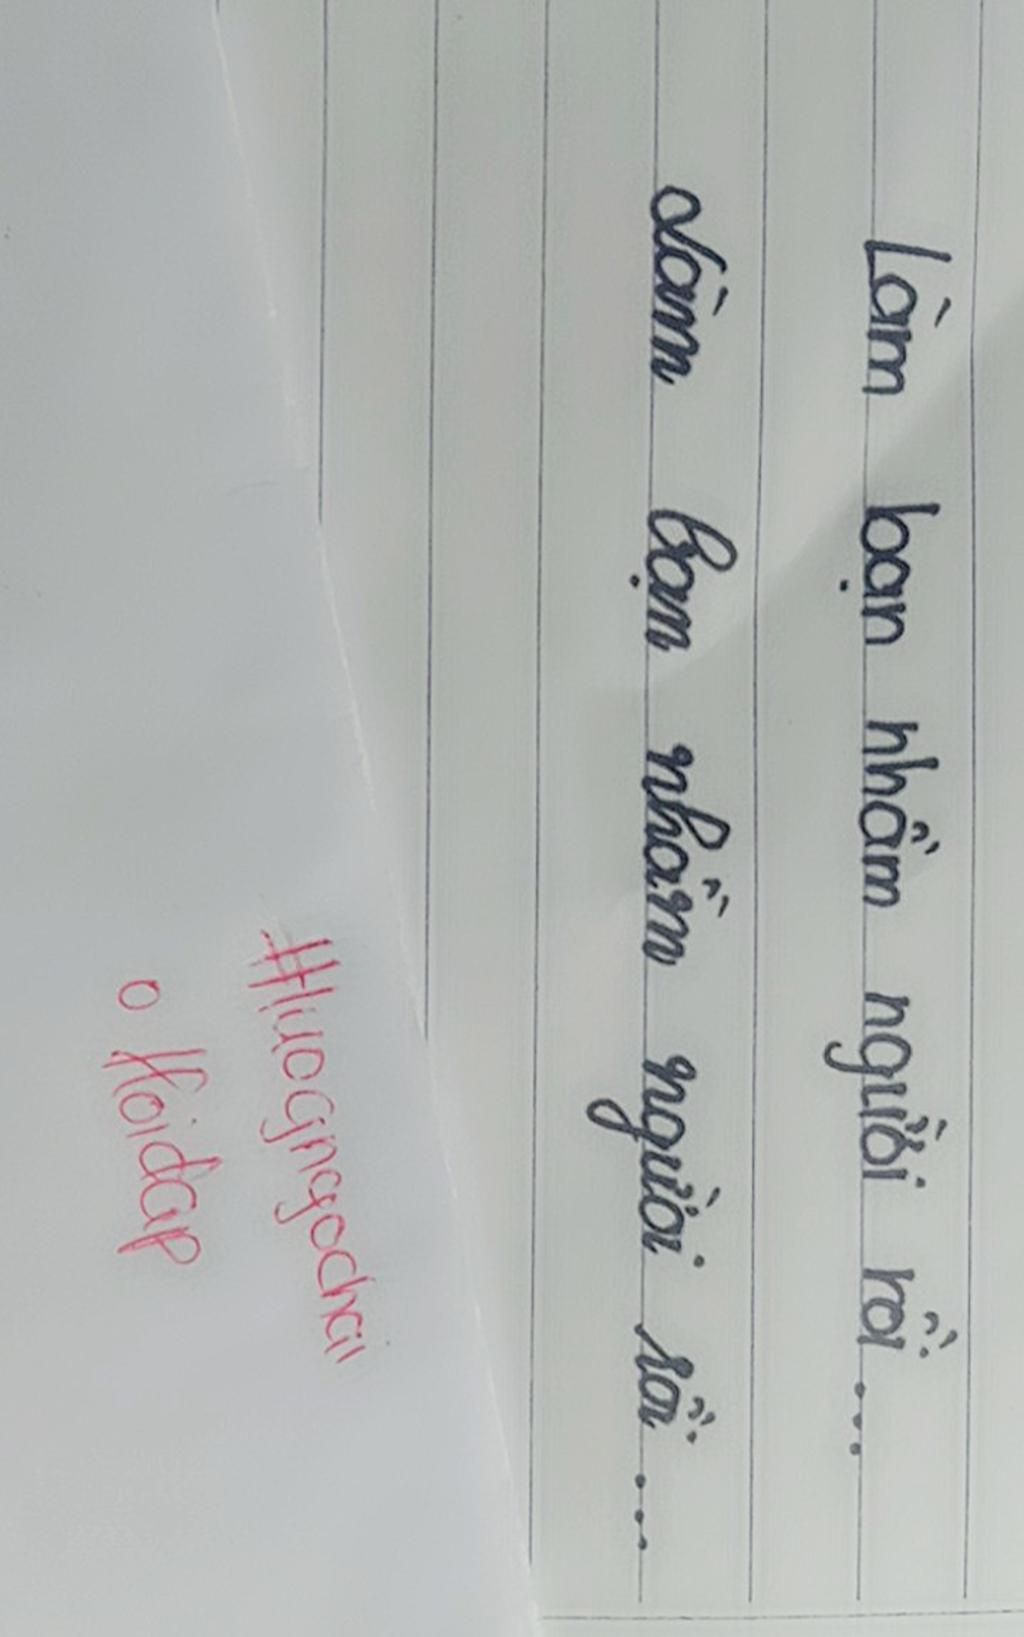 Làm bạn nhầm người rồi...
Làm bạn nhầm người rồi...
#luogngochai
o Hoidap